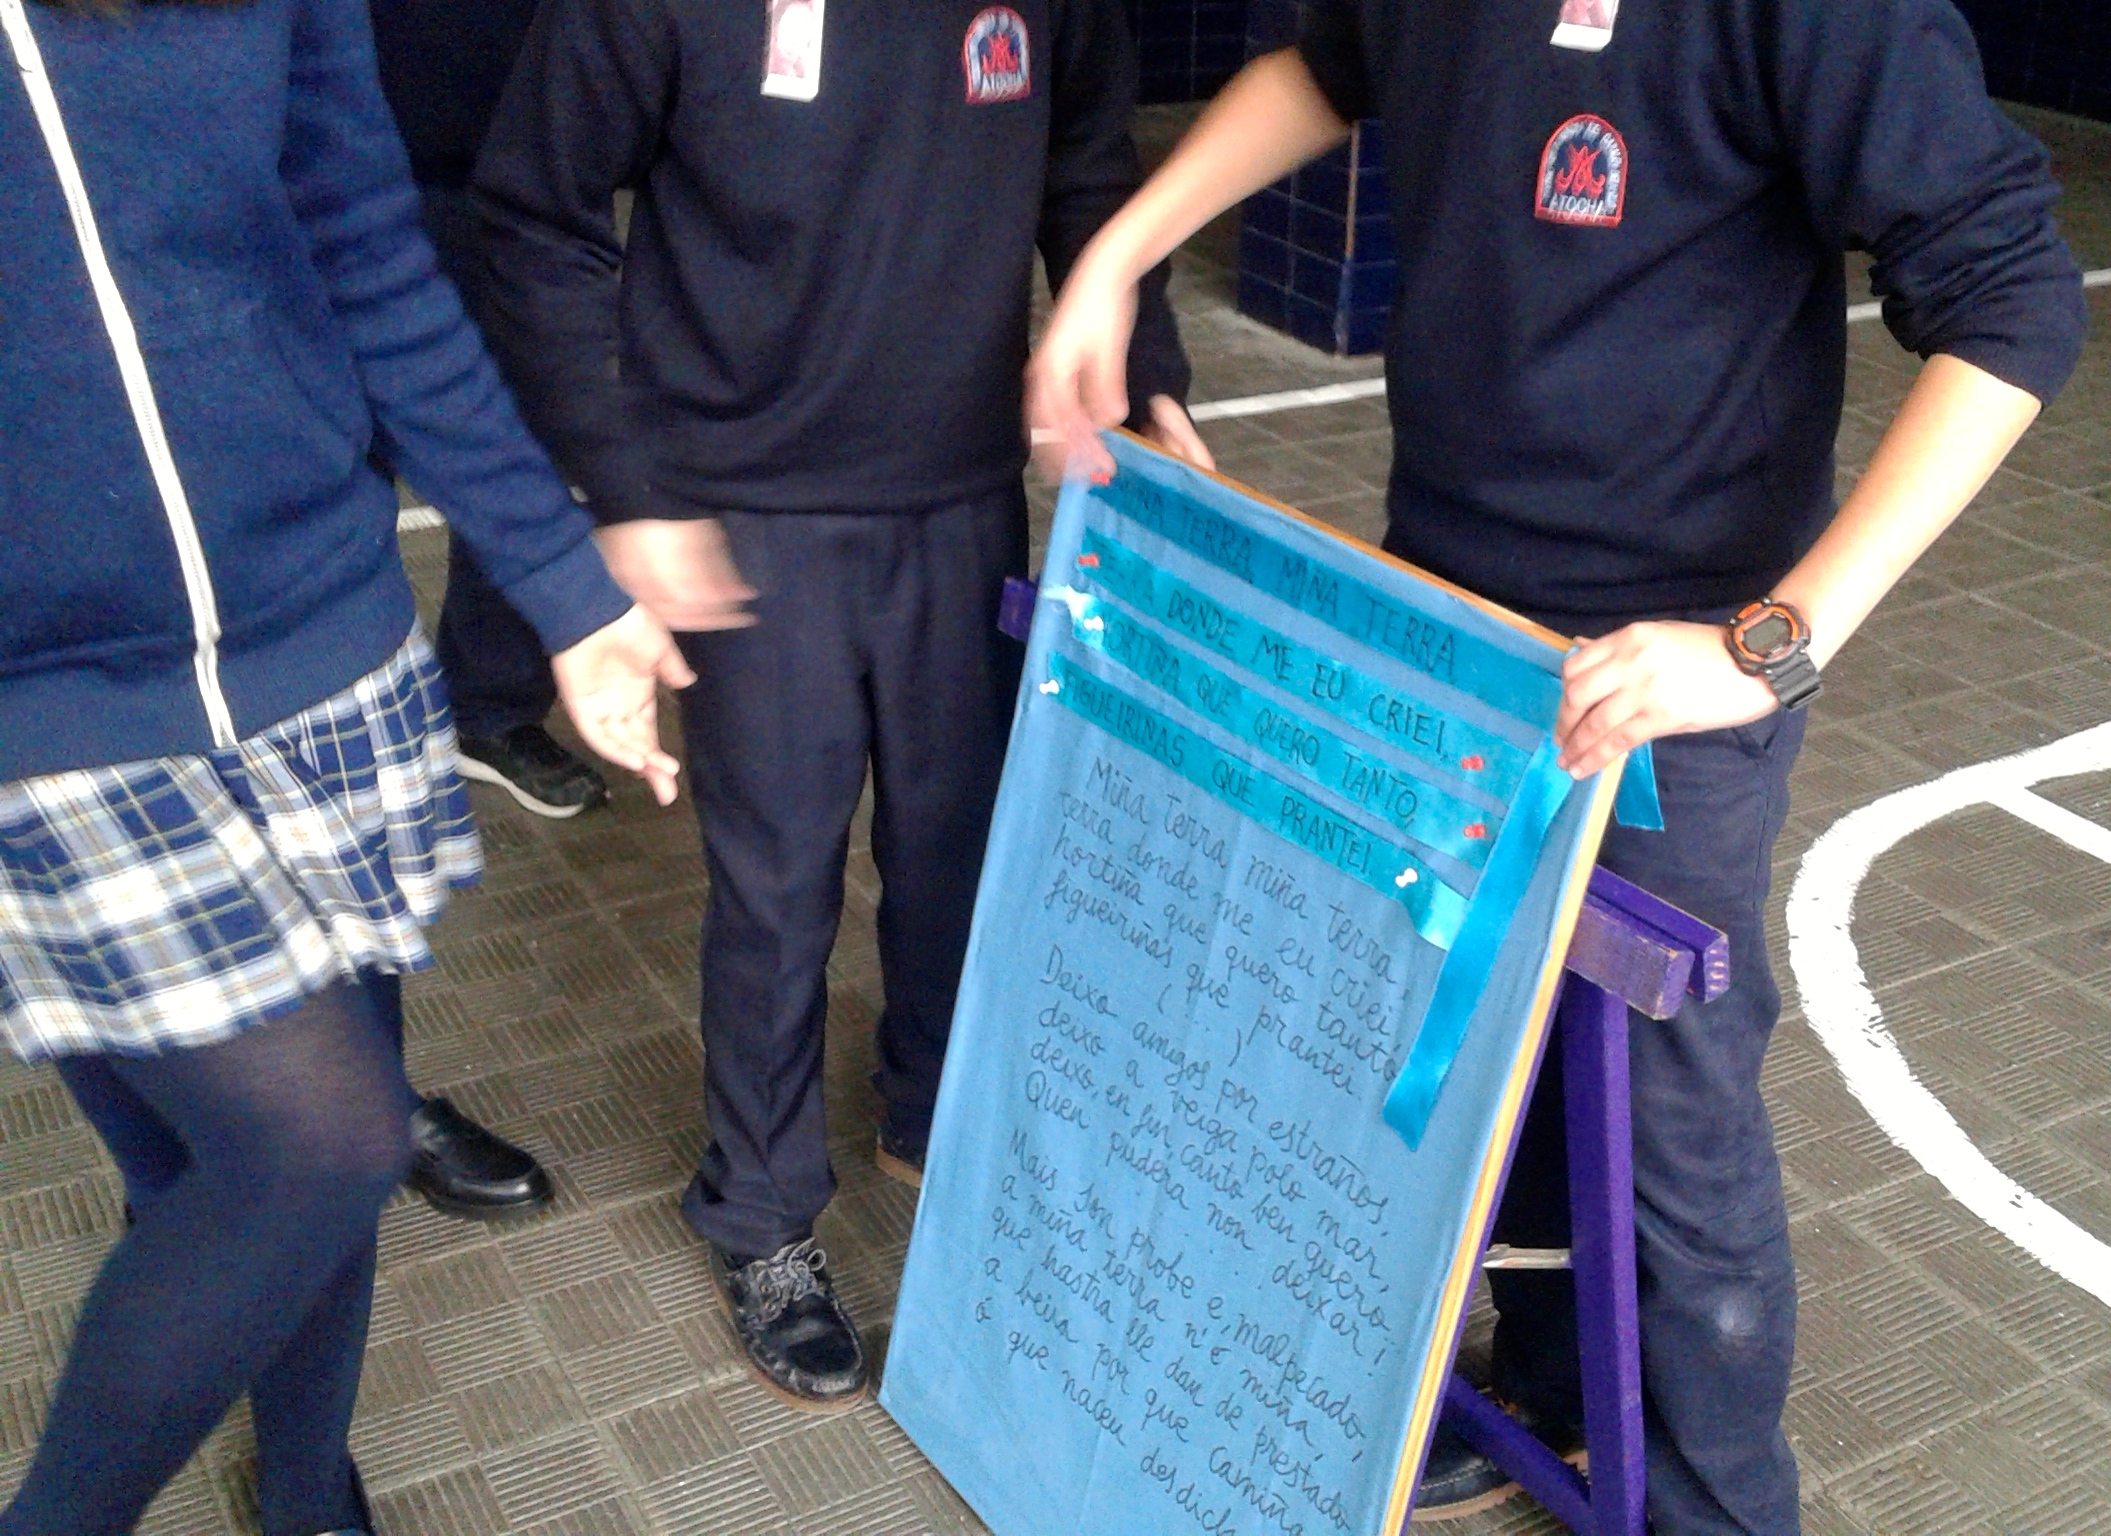 ATOCHA
ATOCHA
TERRA, MIÑA TERRA
DONDE ME EU CRIEI,
HORTIÑA QUE QUERO TANTO,
FIGUEIRIÑAS QUE PRANTEI.
Miña terra miña terra,
terra donde me eu criei,
hortiña que quero tanto,
figueiriñas que prantei.
(...)
Deixo amigos por estraños,
deixo a veiga polo mar,
deixo, en fin, canto ben quero.
Quen pudera non deixar!
...
Mais son probe e, malpecado,
a miña terra n'é miña,
que hastra lle dan de prestado
a beira por que camiña
ó que naceu